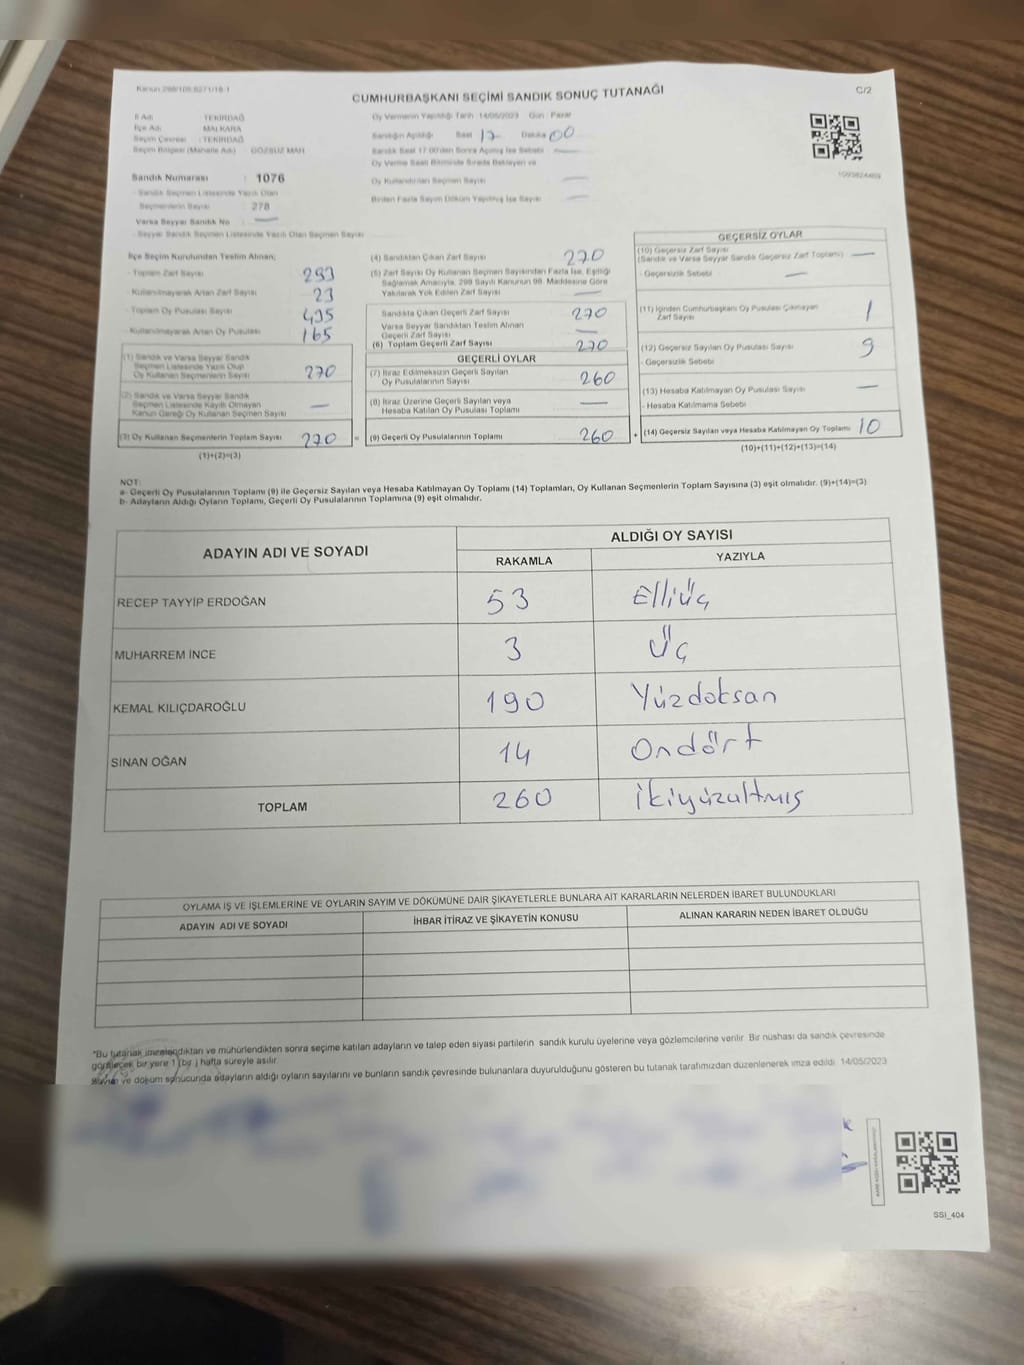 Kanun:298/105:6271/18-1
CUMHURBAŞKANI SEÇİMİ SANDIK SONUÇ TUTANAĞI
C/2
İl Adı : TEKİRDAĞ
İlçe Adı : MALKARA
Seçim Çevresi : TEKİRDAĞ
Seçim Bölgesi (Mahalle Adı) : GÖZSÜZ MAH
Sandık Numarası : 1076
- Sandık Seçmen Listesinde Yazılı Olan
Seçmenlerin Sayısı : 278
Varsa Seyyar Sandık No : —
- Seyyar Sandık Seçmen Listesinde Yazılı Olan Seçmen Sayısı
Oy Vermenin Yapıldığı Tarih 14/05/2023 Gün : Pazar
Sandığın Açıldığı Saat 17 Dakika 00
Sandık Saat 17:00'den Sonra Açılmış İse Sebebi —
Oy Verme Saati Bitiminde Sırada Bekleyen ve
Oy Kullandırılan Seçmen Sayısı —
Birden Fazla Sayım Döküm Yapılmış İse Sayısı —
İlçe Seçim Kurulundan Teslim Alınan;
- Toplam Zarf Sayısı 293
- Kullanılmayarak Artan Zarf Sayısı 23
- Toplam Oy Pusulası Sayısı 435
- Kullanılmayarak Artan Oy Pusulası 165
(1) Sandık ve Varsa Seyyar Sandık
Seçmen Listesinde Yazılı Olup
Oy Kullanan Seçmenlerin Sayısı 270
(2) Sandık ve Varsa Seyyar Sandık
Seçmen Listesinde Kayıtlı Olmayan
Kanun Gereği Oy Kullanan Seçmen Sayısı —
(3) Oy Kullanan Seçmenlerin Toplam Sayısı 270
(1)+(2)=(3)
(4) Sandıktan Çıkan Zarf Sayısı 270
(5) Zarf Sayısı Oy Kullanan Seçmen Sayısından Fazla İse, Eşitliği
Sağlamak Amacıyla, 298 Sayılı Kanunun 98. Maddesine Göre
Yakılarak Yok Edilen Zarf Sayısı —
Sandıkta Çıkan Geçerli Zarf Sayısı 270
Varsa Seyyar Sandıktan Teslim Alınan
Geçerli Zarf Sayısı —
(6) Toplam Geçerli Zarf Sayısı 270
GEÇERLİ OYLAR
(7) İtiraz Edilmeksizin Geçerli Sayılan
Oy Pusulalarının Sayısı 260
(8) İtiraz Üzerine Geçerli Sayılan veya
Hesaba Katılan Oy Pusulası Toplamı —
= (9) Geçerli Oy Pusulalarının Toplamı 260
GEÇERSİZ OYLAR
(10) Geçersiz Zarf Sayısı
(Sandık ve Varsa Seyyar Sandık Geçersiz Zarf Toplamı) —
- Geçersizlik Sebebi —
(11) İçinden Cumhurbaşkanı Oy Pusulası Çıkmayan
Zarf Sayısı 1
(12) Geçersiz Sayılan Oy Pusulası Sayısı 9
- Geçersizlik Sebebi
(13) Hesaba Katılmayan Oy Pusulası Sayısı —
- Hesaba Katılmama Sebebi
+ (14) Geçersiz Sayılan veya Hesaba Katılmayan Oy Toplamı 10
(10)+(11)+(12)+(13)=(14)
NOT:
a- Geçerli Oy Pusulalarının Toplamı (9) ile Geçersiz Sayılan veya Hesaba Katılmayan Oy Toplamı (14) Toplamları, Oy Kullanan Seçmenlerin Toplam Sayısına (3) eşit olmalıdır. (9)+(14)=(3)
b- Adayların Aldığı Oyların Toplamı, Geçerli Oy Pusulalarının Toplamına (9) eşit olmalıdır.
ADAYIN ADI VE SOYADI
ALDIĞI OY SAYISI
RAKAMLA YAZIYLA
RECEP TAYYİP ERDOĞAN 53 Elliüç
MUHARREM İNCE 3 Üç
KEMAL KILIÇDAROĞLU 190 Yüzdoksan
SİNAN OĞAN 14 Ondört
TOPLAM 260 İkiyüzaltmış
OYLAMA İŞ VE İŞLEMLERİNE VE OYLARIN SAYIM VE DÖKÜMÜNE DAİR ŞİKAYETLERLE BUNLARA AİT KARARLARIN NELERDEN İBARET BULUNDUKLARI
ADAYIN ADI VE SOYADI
İHBAR İTİRAZ VE ŞİKAYETİN KONUSU
ALINAN KARARIN NEDEN İBARET OLDUĞU
*Bu tutanak imzalandıktan ve mühürlendikten sonra seçime katılan adayların ve talep eden siyasi partilerin sandık kurulu üyelerine veya gözlemcilerine verilir. Bir nüshası da sandık çevresinde
görülecek bir yere 1 (bir ) hafta süreyle asılır.
Sayım ve döküm sonucunda adayların aldığı oyların sayılarını ve bunların sandık çevresinde bulunanlara duyurulduğunu gösteren bu tutanak tarafımızdan düzenlenerek imza edildi. 14/05/2023
SSI_404